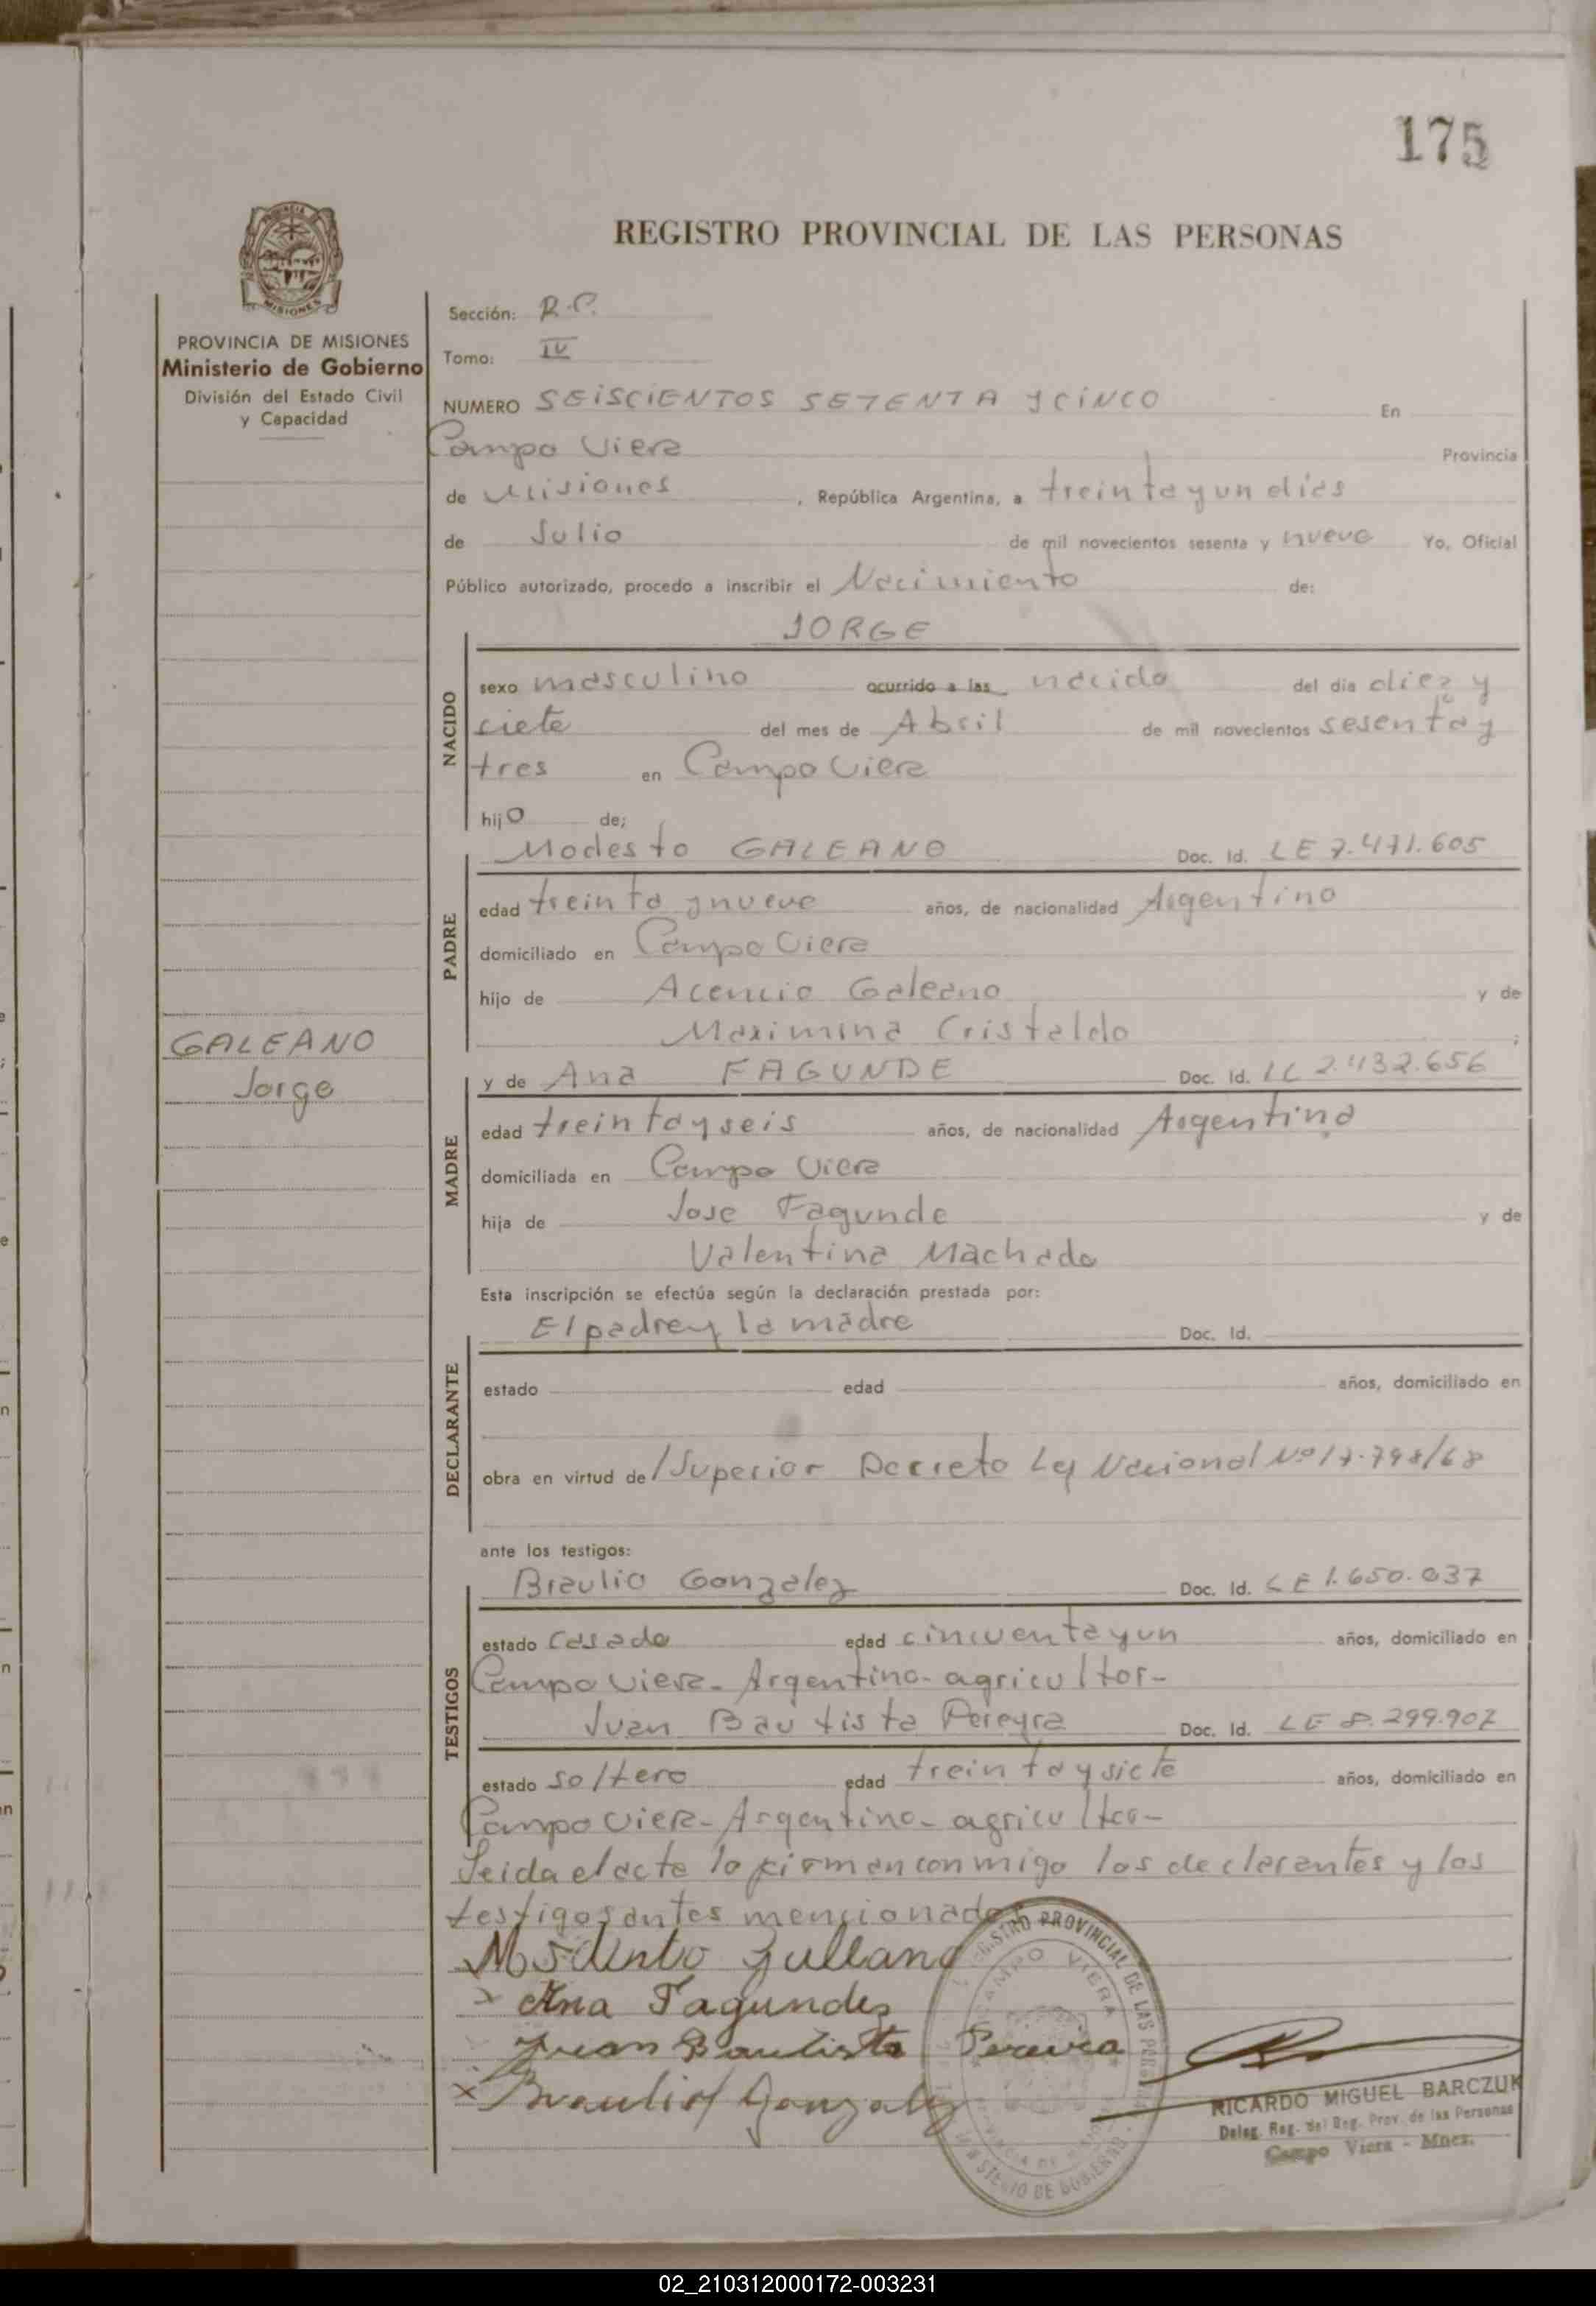 175
REGISTRO PROVINCIAL DE LAS PERSONAS
PROVINCIA DE MISIONES
Ministerio de Gobierno
División del Estado Civil
y Capacidad
GALEANO
Jorge
Sección: R.P.
Tomo: IV
NUMERO SEISCIENTOS SETENTA Y CINCO En
Campo Viera Provincia
de Misiones, República Argentina, a treinta y un dias
de Julio de mil novecientos sesenta y nueve Yo, Oficial
Público autorizado, procedo a inscribir el Nacimiento de:
JORGE
NACIDO
sexo masculino ocurrido a las nacido del día diez y
siete del mes de Abril de mil novecientos sesenta y
tres en Campo Viera
hijo de;
PADRE
Modesto GALEANO Doc. Id. LE 7.471.605
edad treinta y nueve años, de nacionalidad Argentino
domiciliado en Campo Viera
hijo de Acencio Galeano y de
Maximina Cristaldo ;
MADRE
y de Ana FAGUNDE Doc. Id. LC 2.432.656
edad treinta y seis años, de nacionalidad Argentina
domiciliada en Campo Viera
hija de Jose Fagunde y de
Valentina Machado
Esta inscripción se efectúa según la declaración prestada por:
DECLARANTE
El padre y la madre Doc. Id.
estado edad años, domiciliado en
obra en virtud de/Superior Decreto Ley Nacional Nº 17.798/68
ante los testigos:
TESTIGOS
Braulio Gonzalez Doc. Id. LE 1.650.037
estado casado edad cincuenta y un años, domiciliado en
Campo Viera- Argentino- agricultor-
Juan Bautista Pereyra Doc. Id. LE 8.299.907
estado soltero edad treinta y siete años, domiciliado en
Campo Viera- Argentino- agricultor-
Leida el acta la firman conmigo los declarantes y los
testigos antes mencionados
Ana Fagundes
Juan Bautista Pereira
x Braulio Gonzalez
REGISTRO PROVINCIAL DE LAS PERSONAS
CAMPO VIERA
MINISTERIO DE GOBIERNO
RICARDO MIGUEL BARCZUK
Deleg. Reg. del Reg. Prov. de las Personas
Campo Viera - Mnes.
02_210312000172-003231